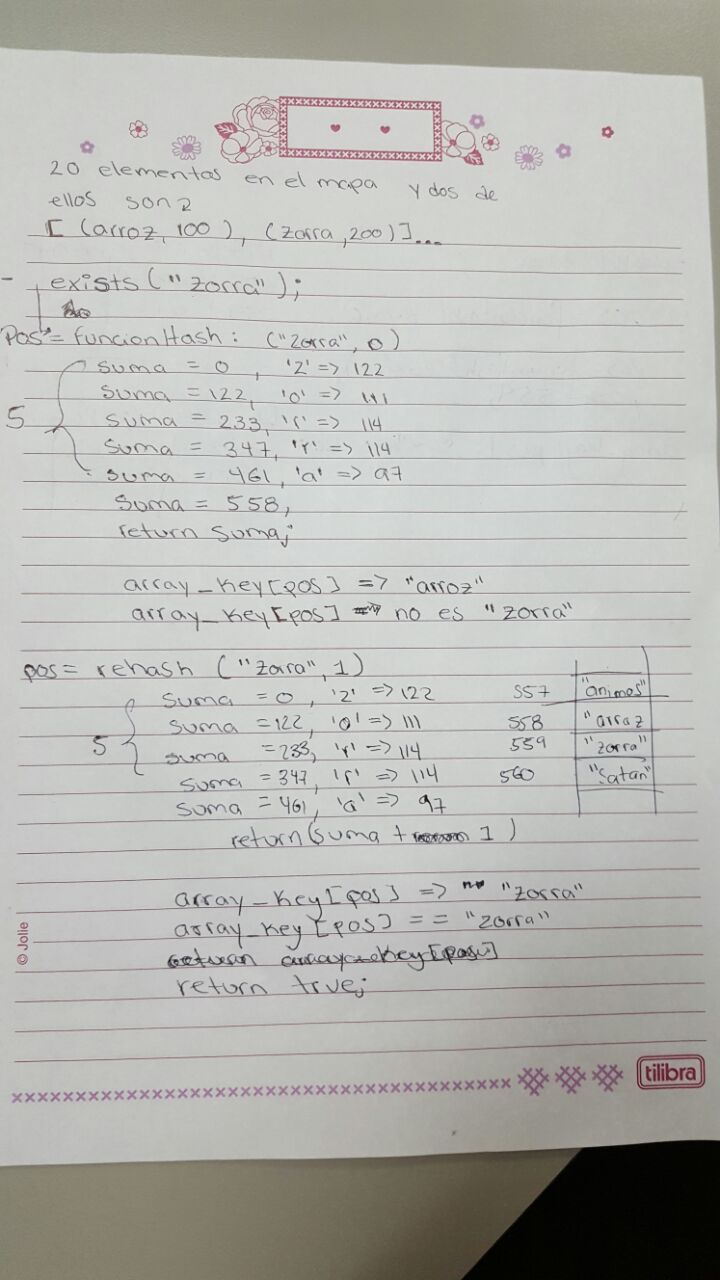 20 elementos en el mapa y dos de
ellos son
[ (arroz, 100), (zorra, 200)]...
- exists ("zorra");
Pos = funcionHash: ("zorra", 0)
suma = 0, 'z' => 122
suma = 122, 'o' => 111
5 suma = 233, 'r' => 114
suma = 347, 'r' => 114
suma = 461, 'a' => 97
suma = 558,
return suma;
array_key[pos] => "arroz"
array_key[pos] no es "zorra"
pos = rehash ("zorra", 1)
suma = 0, 'z' => 122
suma = 122, 'o' => 111
5 suma = 233, 'r' => 114
suma = 347, 'r' => 114
suma = 461, 'a' => 97
return (suma + 1)
557 "animos"
558 "arraz
559 "zorra"
560 "Satan"
array_key[pos] => "zorra"
array_key[pos] == "zorra"
return array_key[pos]
return true;
© Jolie
tilibra